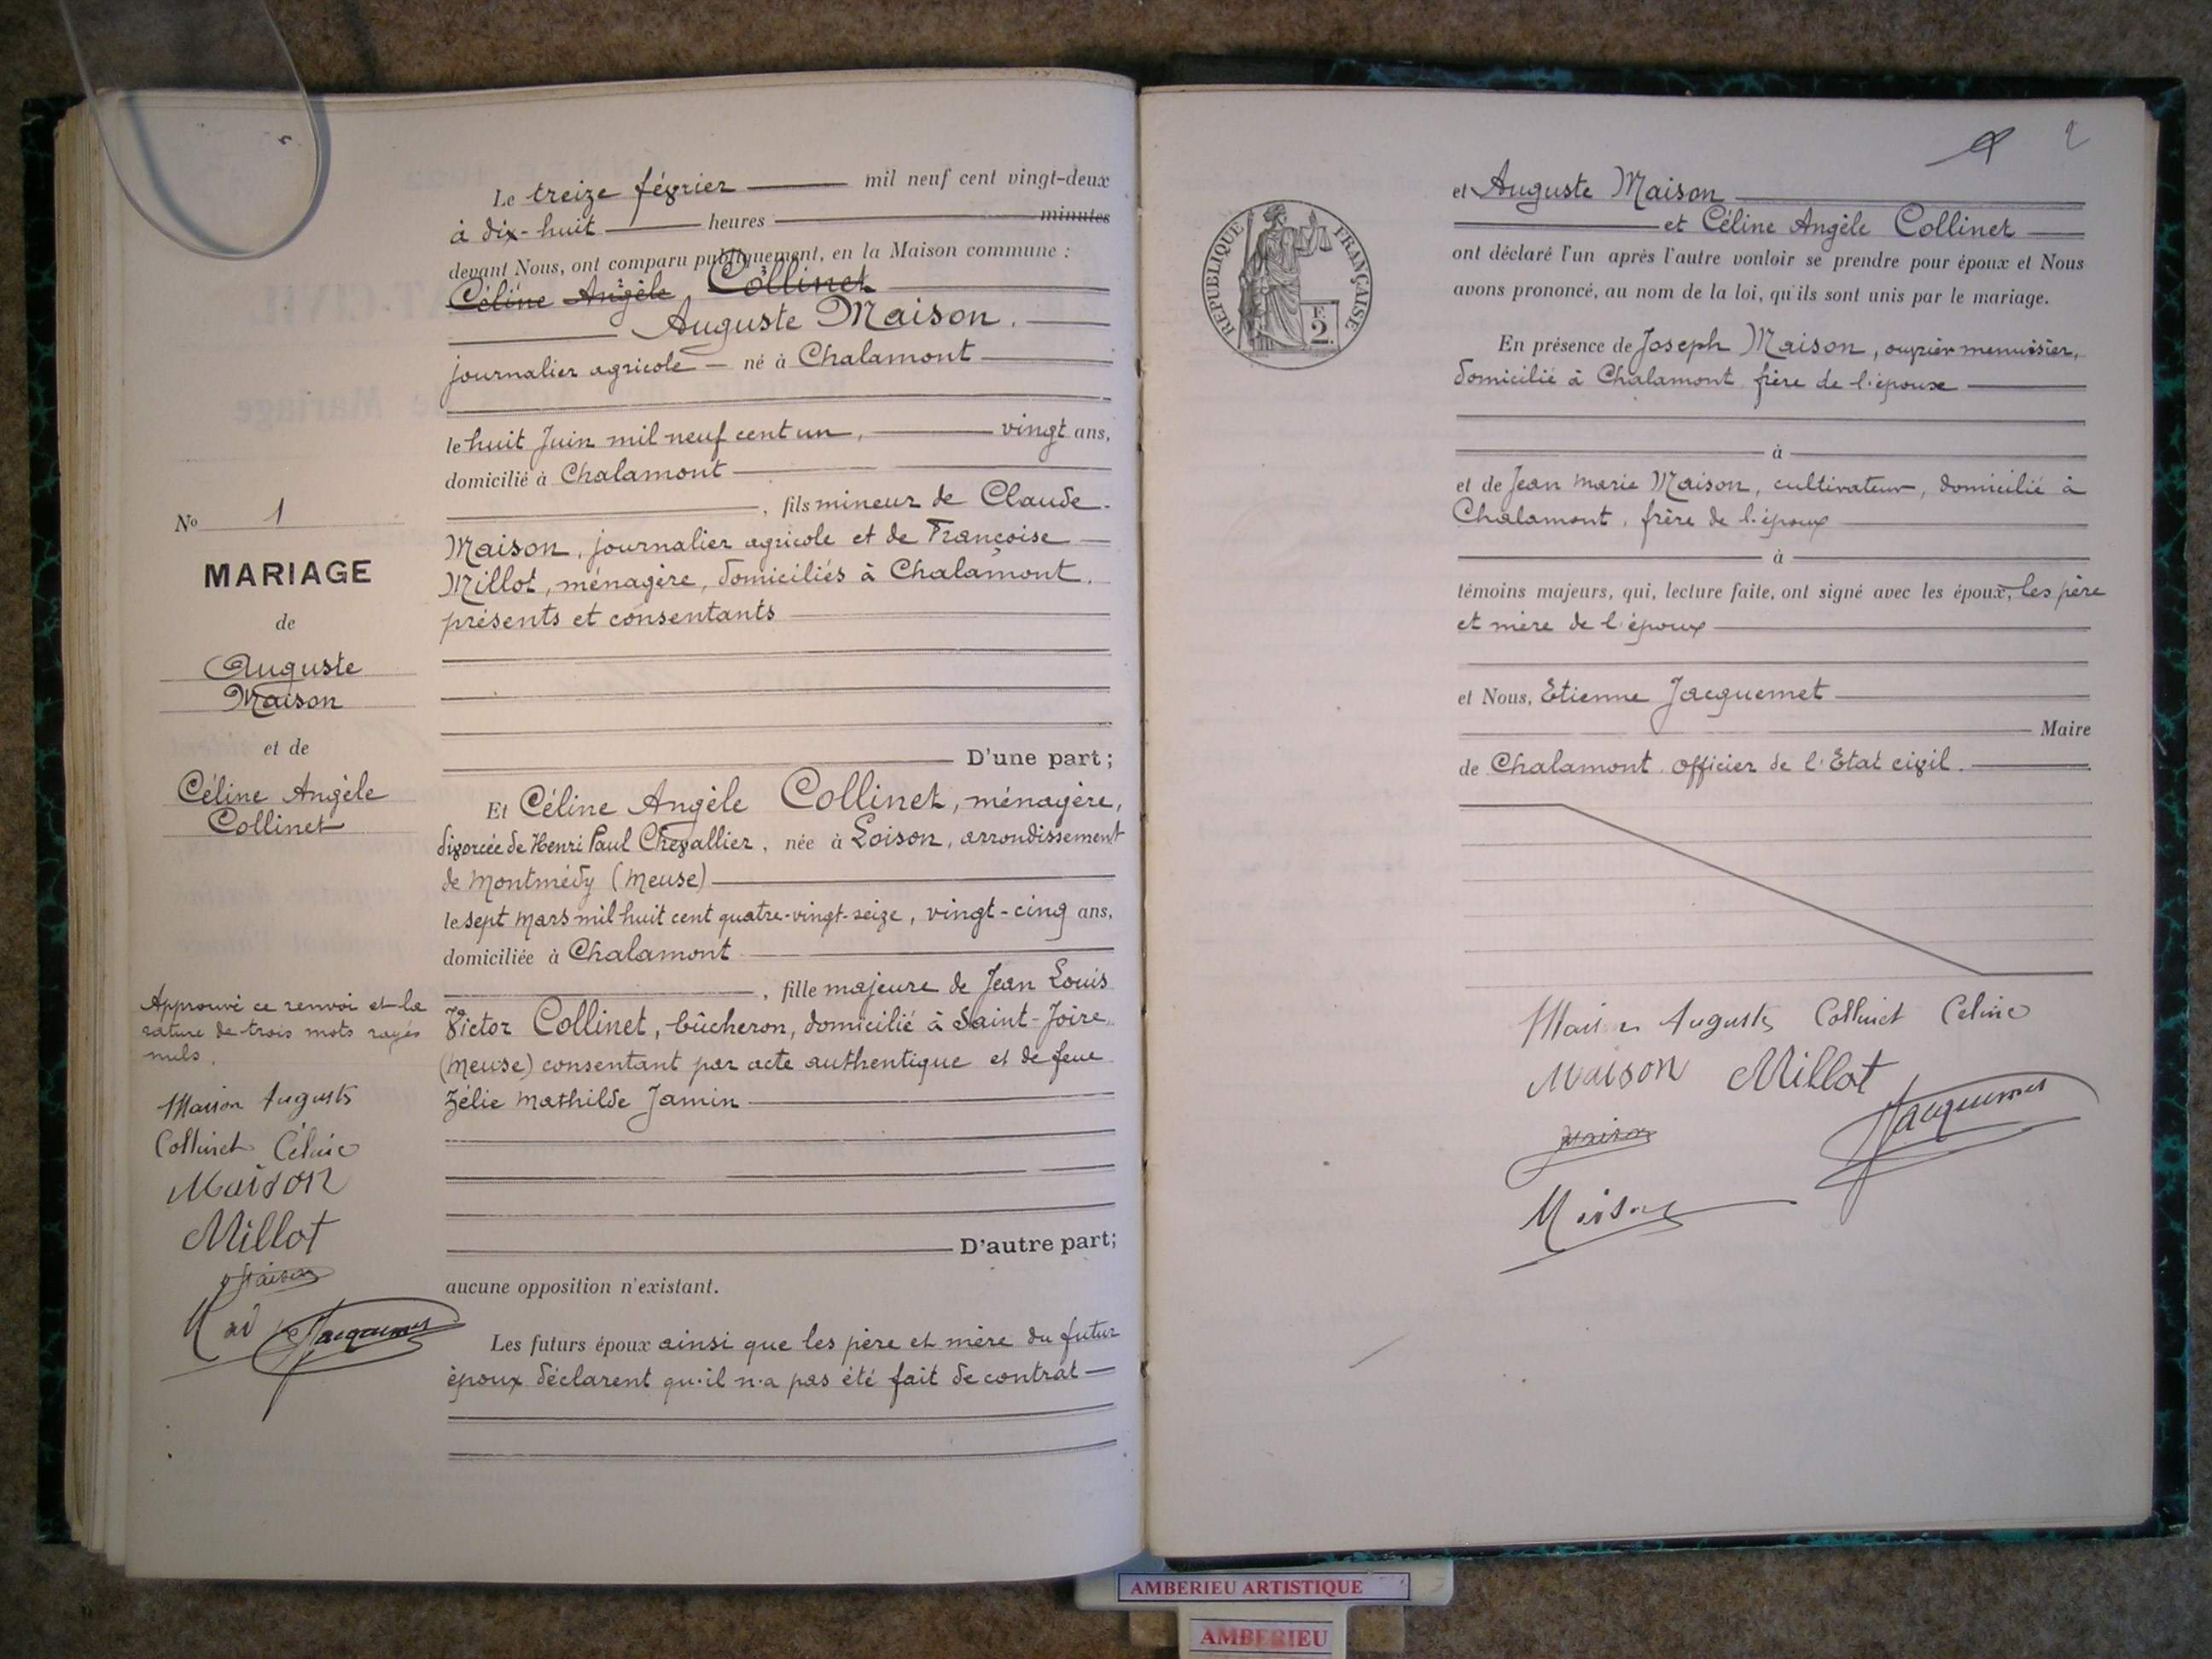 Le treize février mil neuf cent vingt-deux
à dix-huit heures minutes
devant Nous, ont comparu publiquement, en la Maison commune :
Céline Angèle Collinet
Auguste Maison.
journalier agricole — né à Chalamont
le huit Juin mil neuf cent un, vingt ans,
domicilié à Chalamont
, fils mineur de Claude
Maison, journalier agricole et de Françoise
Millot, ménagère, domiciliés à Chalamont,
présents et consentants
D'une part ;
Et Céline Angèle Collinet, ménagère,
divorcée de Henri Paul Chevallier, née à Loison, arrondissement
de Montmédy (Meuse)
le sept Mars mil huit cent quatre-vingt-seize, vingt-cinq ans,
domiciliée à Chalamont
, fille majeure de Jean Louis
Victor Collinet, bûcheron, domicilié à Saint-Joire
(Meuse) consentant par acte authentique et de feue
Zélie Mathilde Jamin
D'autre part ;
aucune opposition n'existant.
Les futurs époux ainsi que les père et mère du futur
époux déclarent qu'il n'a pas été fait de contrat
No 1
MARIAGE
de
Auguste
Maison
et de
Céline Angèle
Collinet
Approuvé ce renvoi et la
rature de trois mots rayés
nuls.
Maison Auguste
Collinet Céline
Maison
Millot
Maison
Jacquemet
2
REPUBLIQUE FRANÇAISE
F.
2.
et Auguste Maison
et Céline Angèle Collinet
ont déclaré l'un après l'autre vouloir se prendre pour époux et Nous
avons prononcé, au nom de la loi, qu'ils sont unis par le mariage.
En présence de Joseph Maison, ouvrier menuisier,
domicilié à Chalamont frère de l'épouse
à
et de Jean Marie Maison, cultivateur, domicilié à
Chalamont, frère de l'époux
à
témoins majeurs, qui, lecture faite, ont signé avec les époux, les père
et mère de l'époux
et Nous, Etienne Jacquemet
Maire
de Chalamont officier de l'Etat civil.
Maison Auguste Collinet Céline
Maison Millot
Maison Jacquemet
Maison
AMBERIEU ARTISTIQUE
AMBERIEU